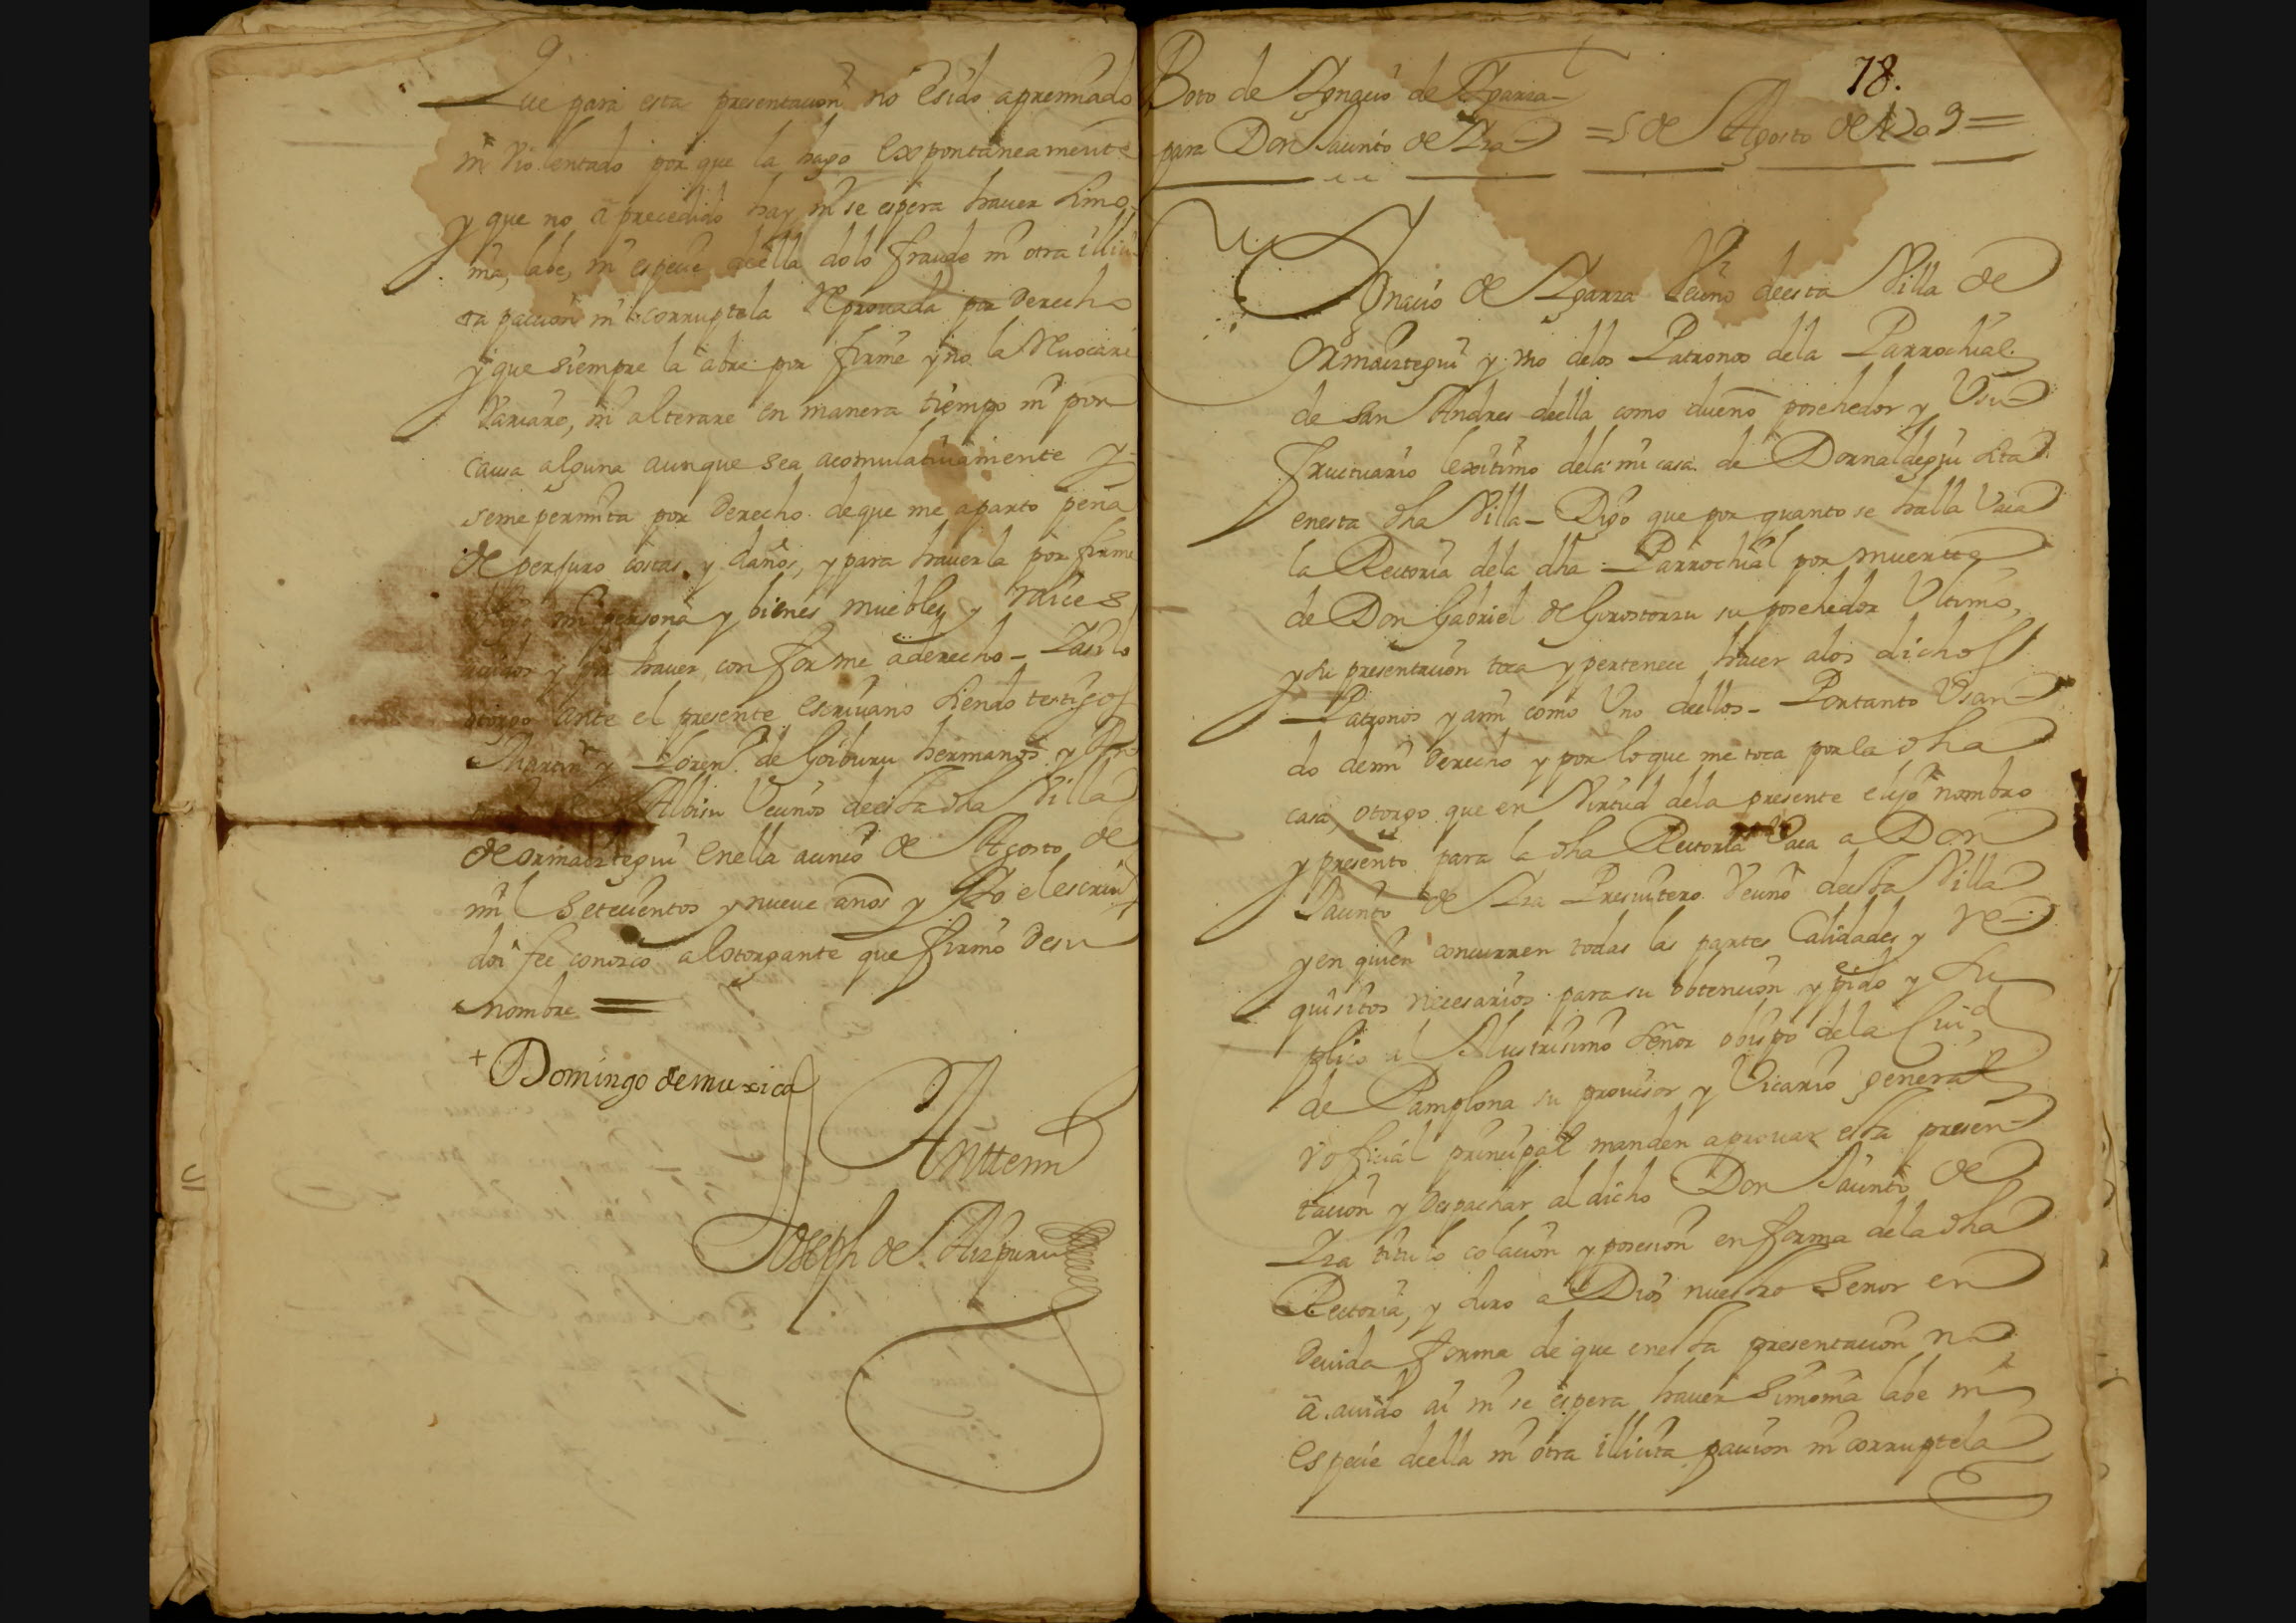 Que para esta presentacion no e sido apremiado
ni violentado por que la hago expontaneamente
y que no a precedido hay ni se espera haver simo
nia, labe, ni especie de ella dolo fraude ni otra illici
ta paccion ni corruptela reprovada por derecho
y que siempre la abre por firme y no la revocare
variare, ni alterare en manera tiempo ni por
causa alguna aunque sea acomulativamente y
seme permita por derecho deque me aparto pena
de perjuro costas y daños, y para haverla por firme
mi persona y bienes muebles y raices
avidos y por haver, conforme a derecho - Y asi lo
otorgo ante el presente escrivano siendo testigos
Martin y Loren.º de Goiburu hermanos y
Albisu Vecinos deesta dha Villa
de ormaiztegui enella a cinco de Agosto de
mil Setecientos y nueve años y Yo el escriv.º
doi fee conozco al otorgante que firmo desu
nombre =
+ Domingo de muxica
Anttemi
Joseph de Aizpuru
78.
Boto de Ygnacio de Ygarza
para Don Jacinto de Yza = 5 de Agosto de 1709 =
Ygnacio de Ygarza Vecino deesta Villa de
Ormaiztegui y vno delos Patronos dela Parrochial
de San Andres deella como dueño posehedor y Vsu
fructuario lexitimo dela mi casa de Dornaldegui sita
enesta dha Villa - Digo que por quanto se halla Vaca
la Rectoria dela dha Parrochial por muerte
de Don Gabriel de Gorostorzu su posehedor Vltimo,
y su presentacion toca y pertenece hacer alos dichos
Patronos y a mi como Vno deellos - Portanto Vsan
do demi derecho y por lo que me toca por la dha
casa, otorgo que en Virtud dela presente elijo nombro
y presento para la dha Rectoria Vaca a Don
Jacinto de Yza Presvitero Vecino deesta Villa
y en quien concurren todas las partes Calidades y re
quisitos necesarios para su obtencion y pido y su
plico al Illustrisimo Señor obispo dela Ciud
de Pamplona su provisor y Vicario general
v oficial principal manden aprovar esta presen
tacion y despachar al dicho Don Jacinto de
Yza titulo colacion y posesion en forma dela dha
Rectoria, y Juro a Dios nuestro Señor en
devida forma de que enesta presentacion no
a avido ai ni se espera haver Simonia labe ni
especie deella ni otra illicita paccion ni corruptela